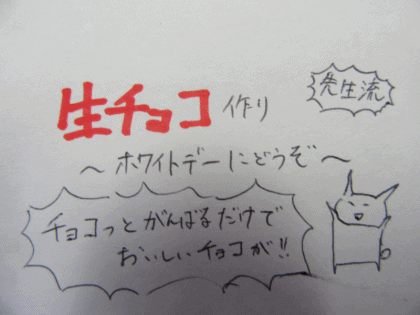 生チョコ作り
先生流
～ホワイトデーにどうぞ～
チョコっとがんばるだけで
おいしいチョコが!!